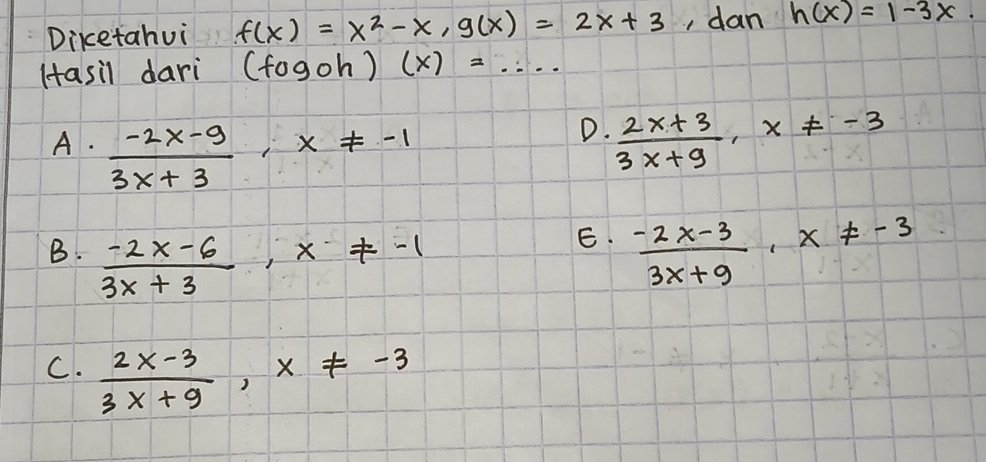 Diketahui f(x) = x² - x, g(x) = 2x + 3, dan h(x) = 1 - 3x.
Hasil dari (fogoh) (x) = ....
A. \frac{-2x-9}{3x+3}, x ≠ -1
B. \frac{-2x-6}{3x+3}, x ≠ -1
C. \frac{2x-3}{3x+9}, x ≠ -3
D. \frac{2x+3}{3x+9}, x ≠ -3
E. \frac{-2x-3}{3x+9}, x ≠ -3